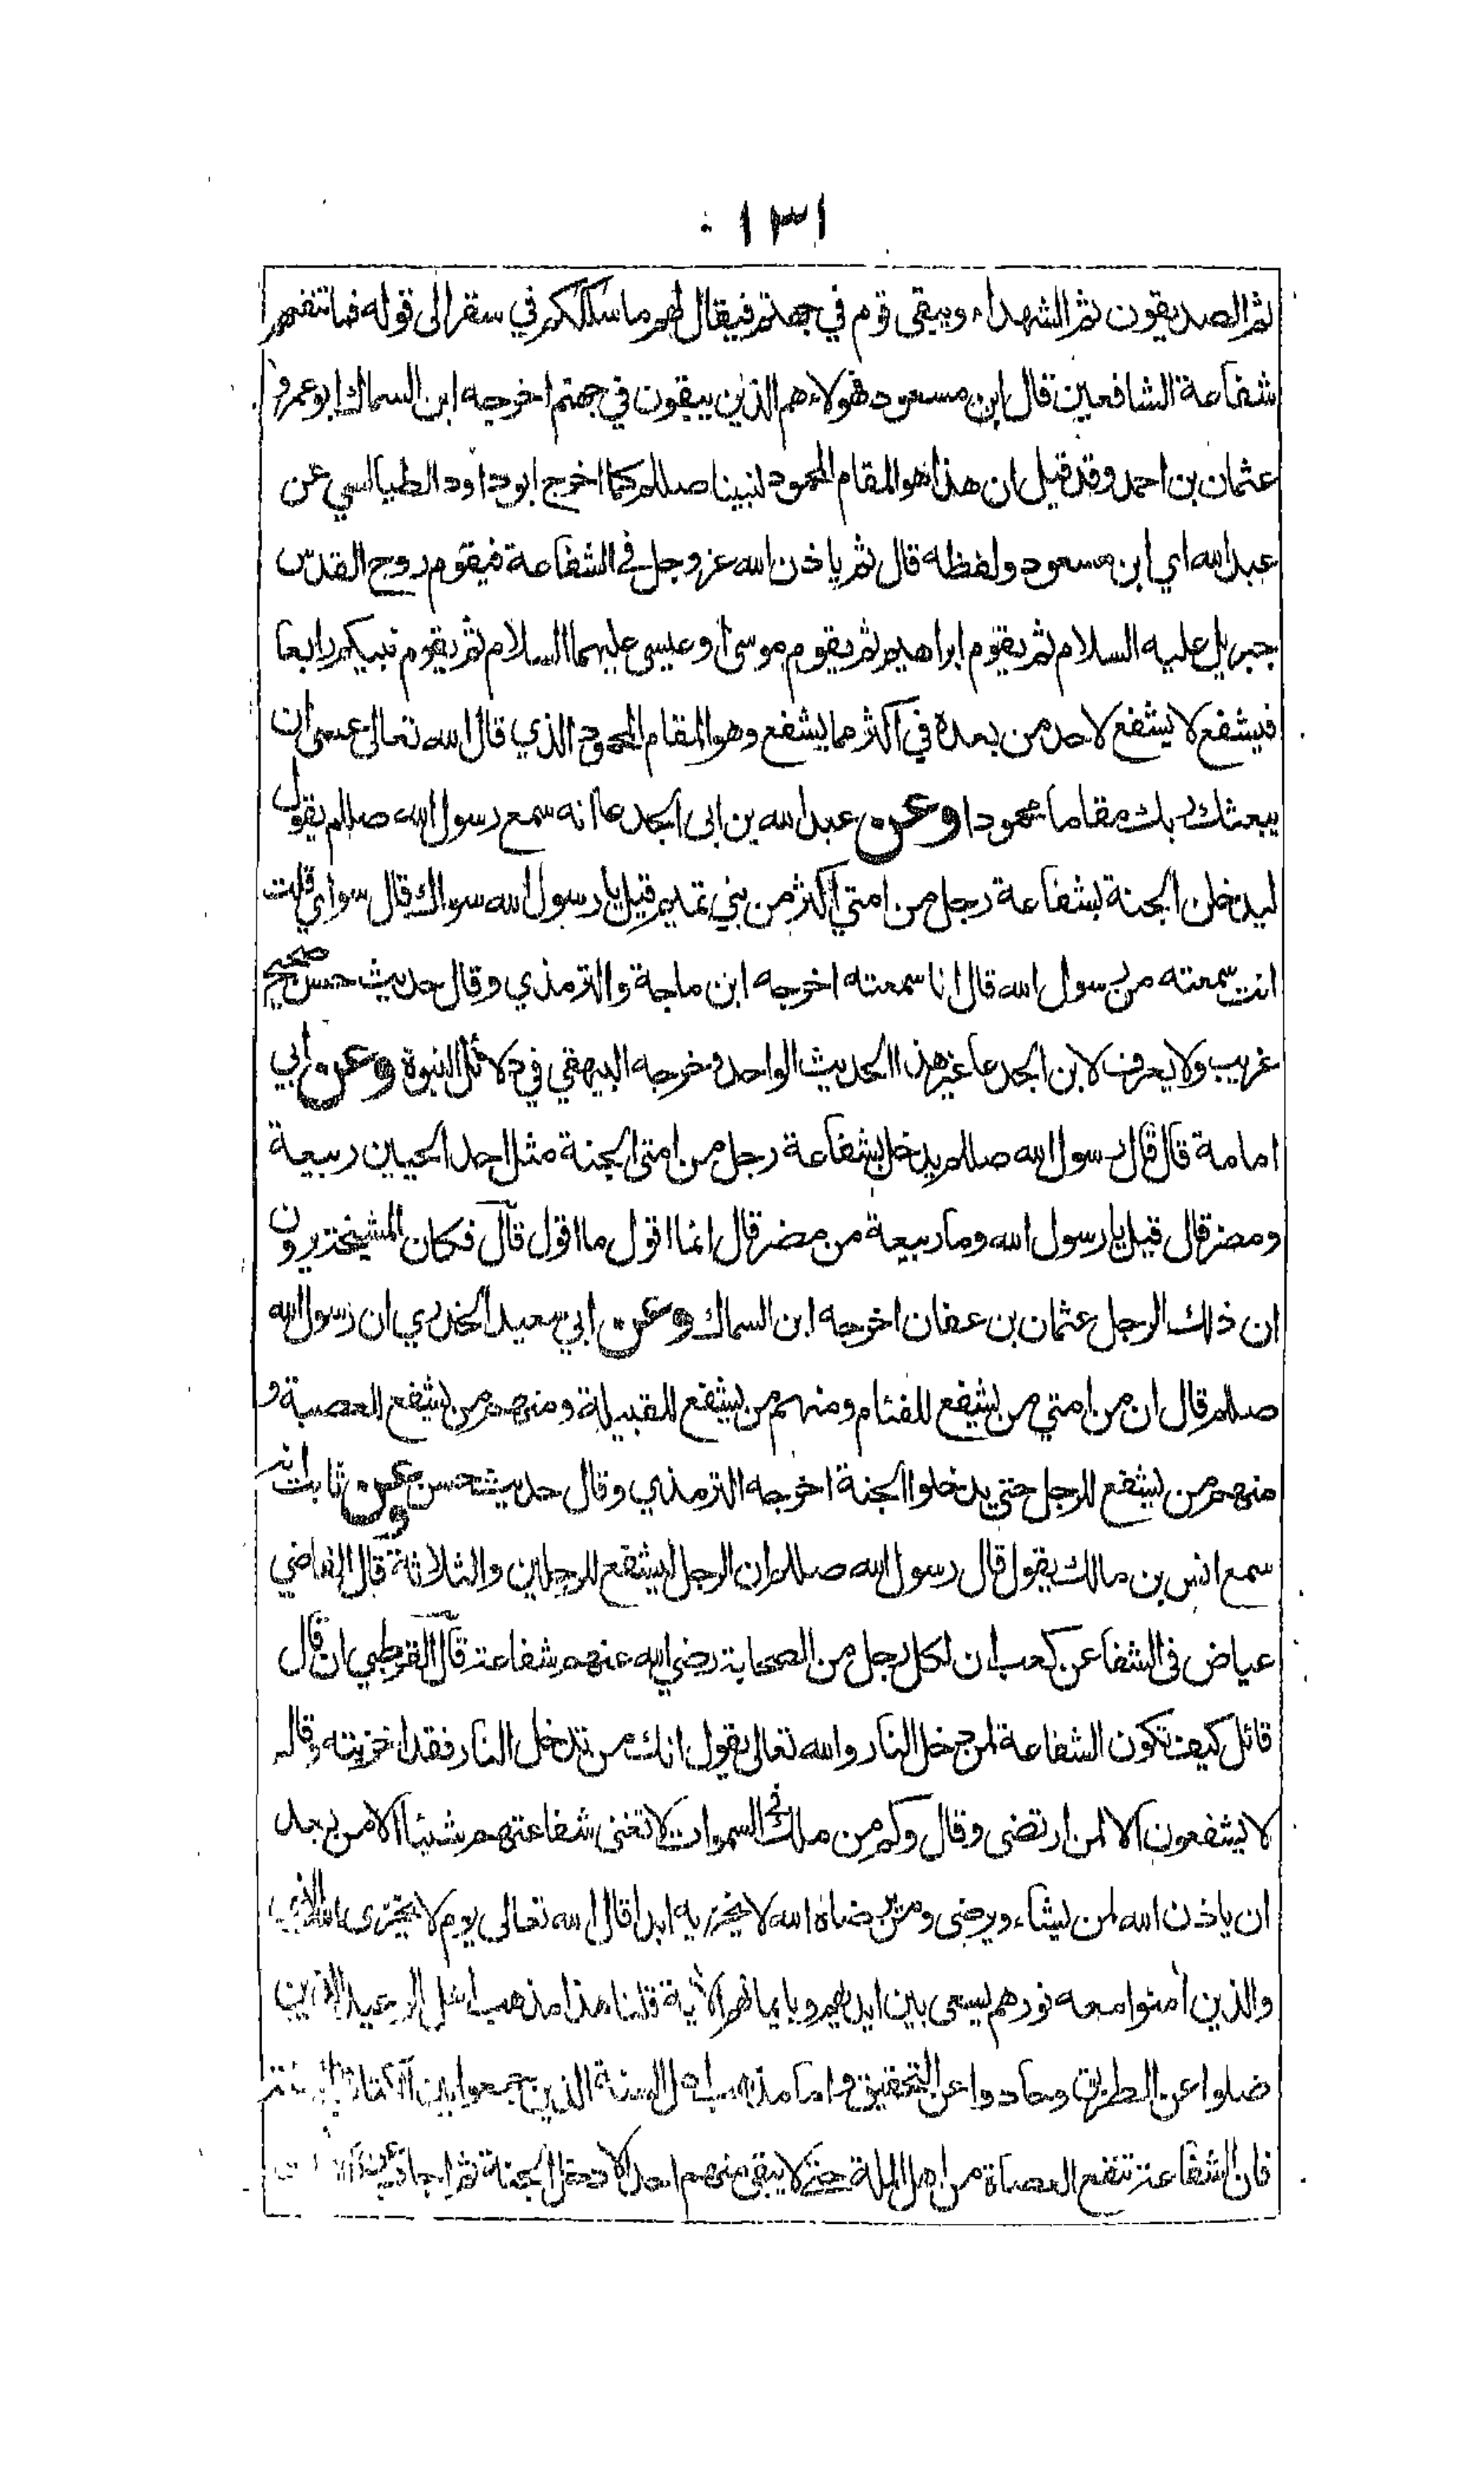 ١٣١
ثم الصديقون ثم الشهداء ويبقى قوم في جهنم فيقال لهم ما سلككم في سقر الى قوله فما تنفعهم
شفاعة الشافعين قال ابن مسعود فهولاء هم الذين يبقون في جهنم اخرجه ابن السماك ابو عمرو
عثمان بن احمد وقد قيل ان هذا هو المقام المحمود لنبينا صللم كما اخرج ابو داود الطيالسي عن
عبد الله اي ابن مسعود ولفظه قال ثم ياذن الله عز وجل في الشفاعة فيقوم روح القدس
جبريل عليه السلام ثم يقوم ابراهيم ثم يقوم موسى او عيسى عليهما السلام ثم يقوم نبيكم رابعا
فيشفع لا يشفع لاحد من بعده في اكثر مما يشفع وهو المقام المحمود الذي قال الله تعالى عسى ان
يبعثك ربك مقاما محمودا وعن عبد الله بن ابي الجدعا انه سمع رسول الله صللم يقول
ليدخلن الجنة بشفاعة رجل من امتي اكثر من بني تميم قيل يا رسول الله سواك قال سواي قلت
انت سمعته من رسول الله قال انا سمعته اخرجه ابن ماجة والترمذي وقال حديث حسن صحيح
غريب ولا يعرف لابن الجدعا غير هذا الحديث الواحد وخرجه البيهقي في دلائل النبوة وعن ابي
امامة قال قال رسول الله صللم يدخل بشفاعة رجل من امتي الجنة مثل احد الحيين ربيعة
ومضر قال قيل يا رسول الله وما ربيعة من مضر قال انما اقول ما اقول قال فكان المشيخة يرون
ان ذلك الرجل عثمان بن عفان اخرجه ابن السماك وعن ابي سعيد الخدري ان رسول الله
صللم قال ان من امتي من يشفع للفئام ومنهم من يشفع للقبيلة ومنهم من يشفع للعصبة و
منهم من يشفع للرجل حتى يدخلوا الجنة اخرجه الترمذي وقال حديث حسن وعن ثابت انه
سمع انس بن مالك يقول قال رسول الله صللم ان الرجل ليشفع للرجلين والثلاثة قال القاضي
عياض في الشفا عن كعب ان لكل رجل من الصحابة رضي الله عنهم شفاعة قال القرطبي ان قال
قائل كيف تكون الشفاعة لمن دخل النار والله تعالى يقول انك من تدخل النار فقد اخزيته وقال
لا يشفعون الا لمن ارتضى وقال وكم من ملك في السموات لا تغنى شفاعتهم شيئا الا من بعد
ان ياذن الله لمن يشاء ويرضى ومن رضاه الله لا يخزيه ابدا قال الله تعالى يوم لا يخزى الله النبي
والذين امنوا معه نورهم يسعى بين ايديهم وبايمانهم الآية قلنا هذا مذهب اهل الوعيد الذين
ضلوا عن الطريق وحادوا عن التحقيق واما مذهب اهل السنة الذين جمعوا بين الكتاب والسنة
فان الشفاعة تنفع العصاة من اهل الملة حتى لا يبقى منهم احد الا دخل الجنة ثم اجاب عن